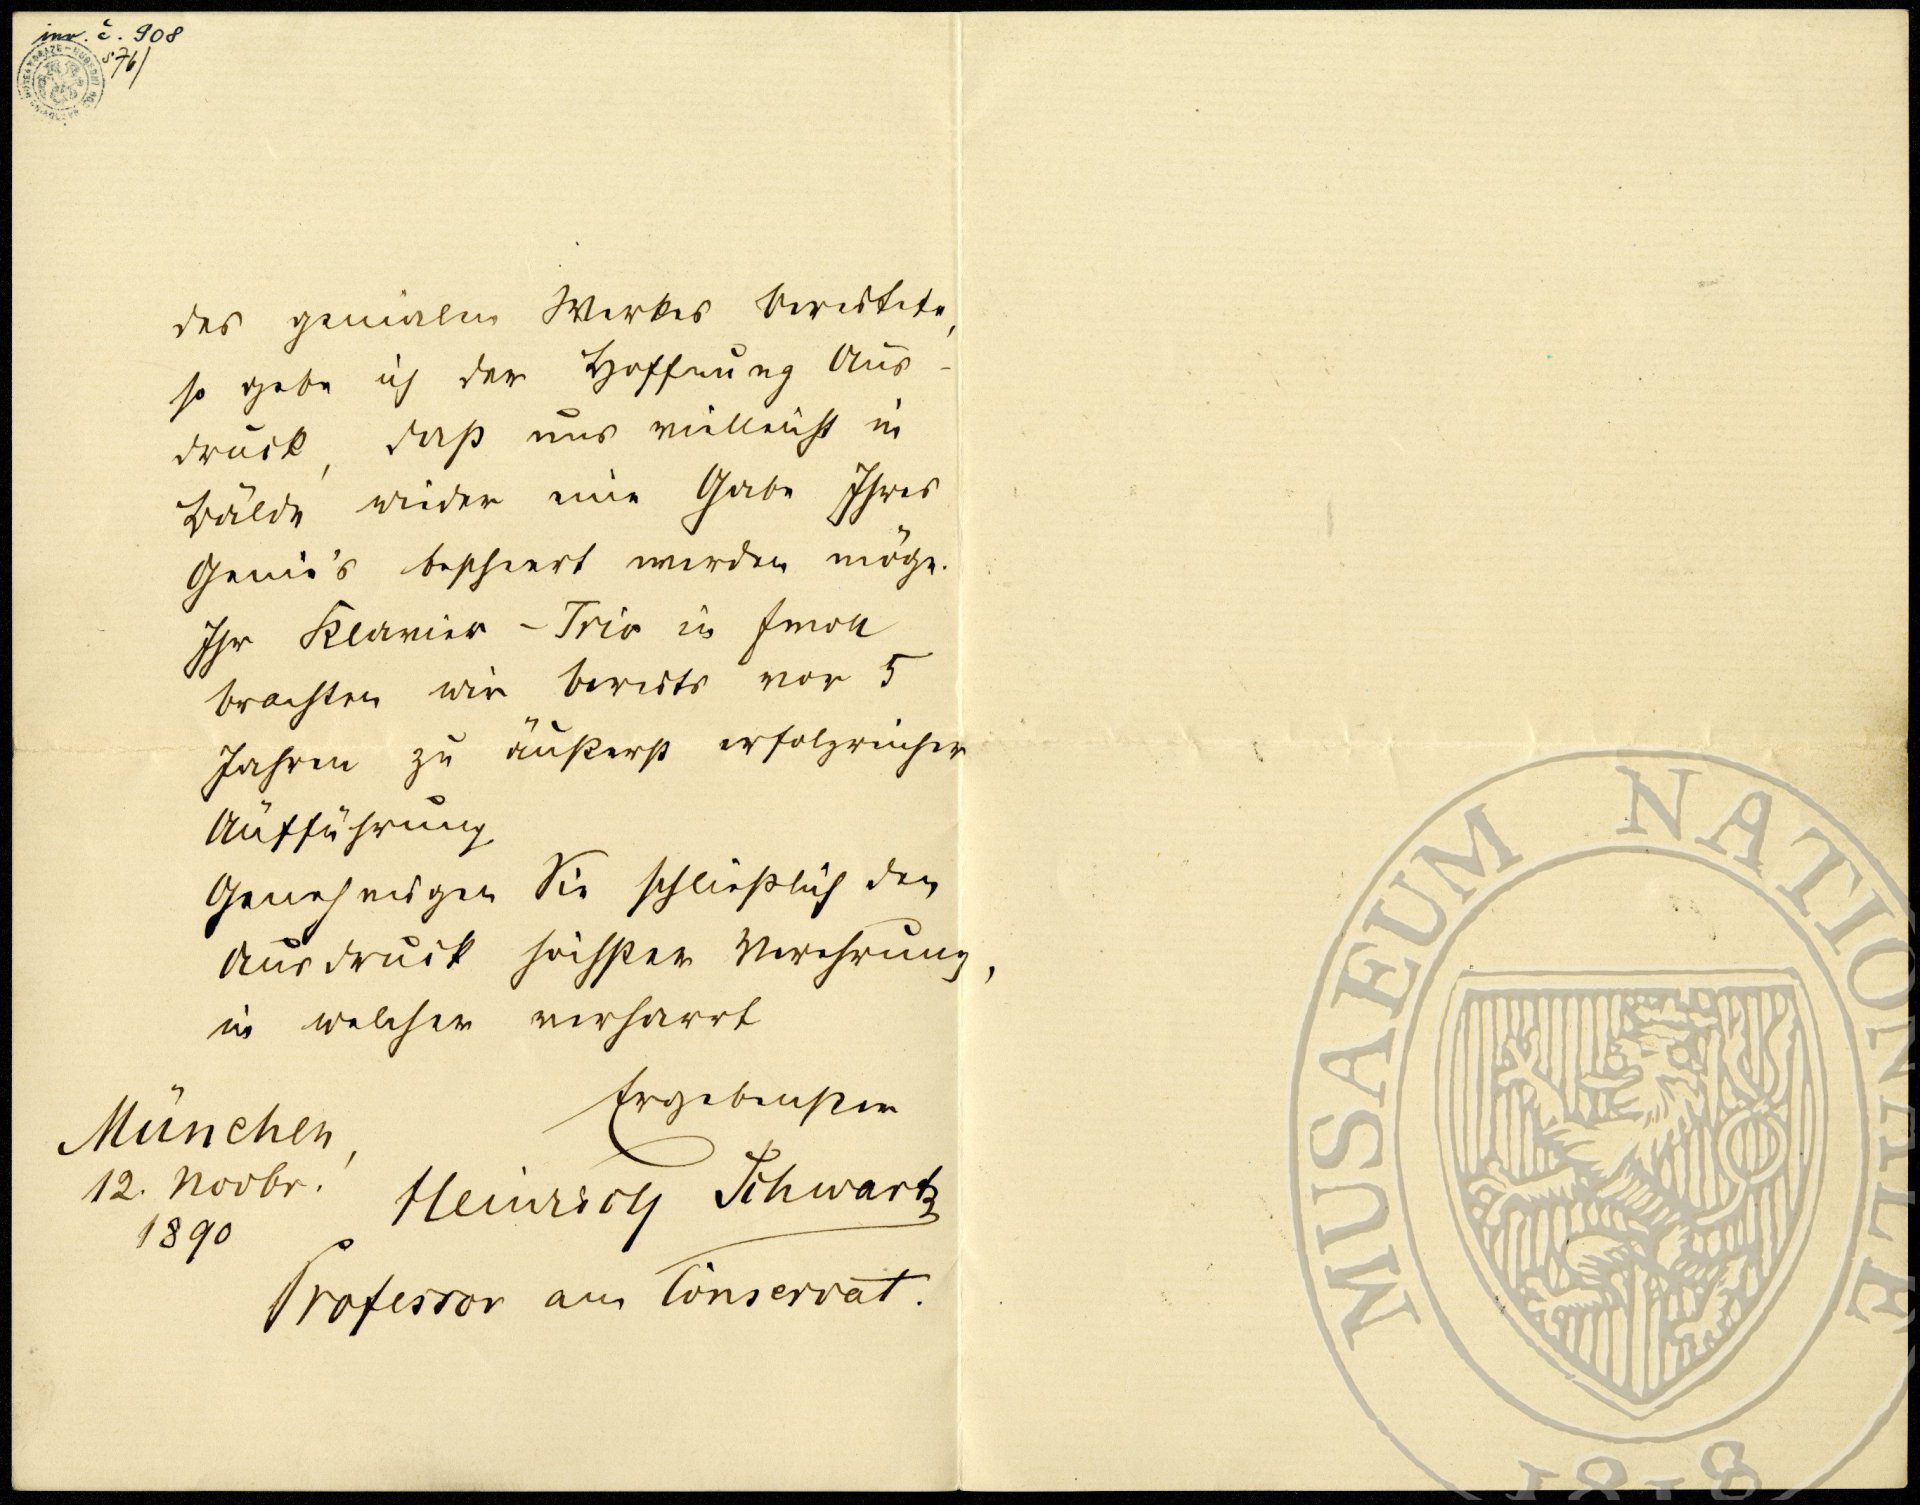 inv. č. 908
S 76/
des genialen Werkes bereitete,
so gebe ich der Hoffnung Aus-
druck, daß uns vielleicht in
Bälde wieder eine Gabe Ihres
Genie's bescheert werden möge.
Ihr Klavier-Trio in fmoll
brachten wir bereits vor 5
Jahren zu äußerst erfolgreicher
Aufführung.
Genehmigen Sie schließlich den
Ausdruck höchster Verehrung,
in welcher verharrt
Ergebenster
München,
12. Novbr.
1890
Heinrich Schwartz
Professor am Conservat.
MUSAEUM NATIONALE
1818